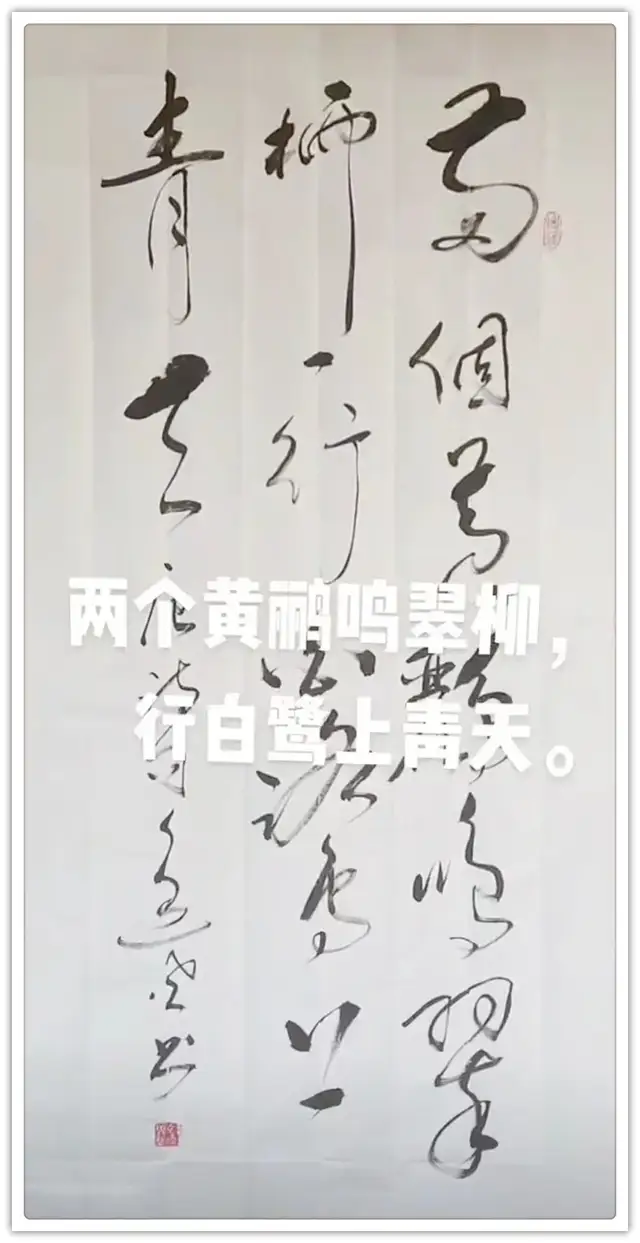 兩個黃鸝鳴翠
柳一行白鷺上
青天 唐诗句 书
两个黄鹂鸣翠柳，
行白鹭上青天。